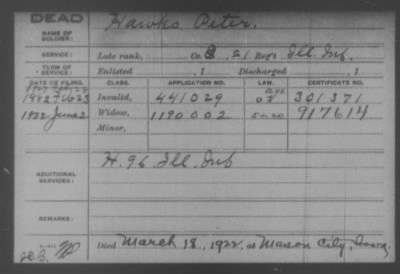 DEAD
NAME OF SOLDIER: Hawks Peter.
SERVICE: Late rank, Co. B, 21 Reg't Ill. Inf.
TERM OF SERVICE: Enlisted , 1 Discharged , 1
DATE OF FILING. CLASS. APPLICATION NO. LAW. CERTIFICATE NO.
Invalid, 441029 301371
1922 June 2 Widow, 1190002 917614
Minor,
ADDITIONAL SERVICES: H. 96 Ill. Inf
REMARKS:
Died March 18, 1922, at Mason City, Iowa.